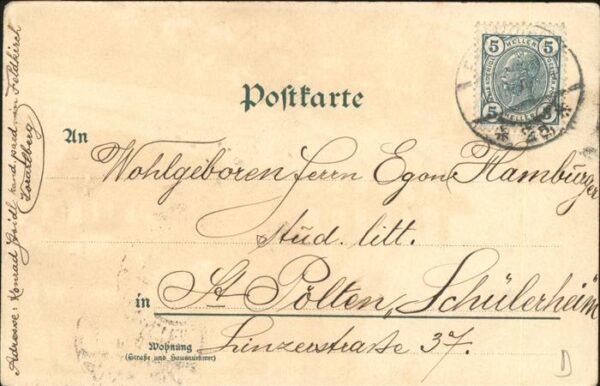 5 HELLER 5
5 HELLER 5
Postkarte
An
Wohlgeboren Herrn Egon Hamburger
stud. litt.
in St. Pölten, „Schülerheim
Wohnung
(Straße und Hausnummer)
Linzerstraße 37.
D
Adresse: Konrad cand. paed. in Feldkirch
Vorarlberg